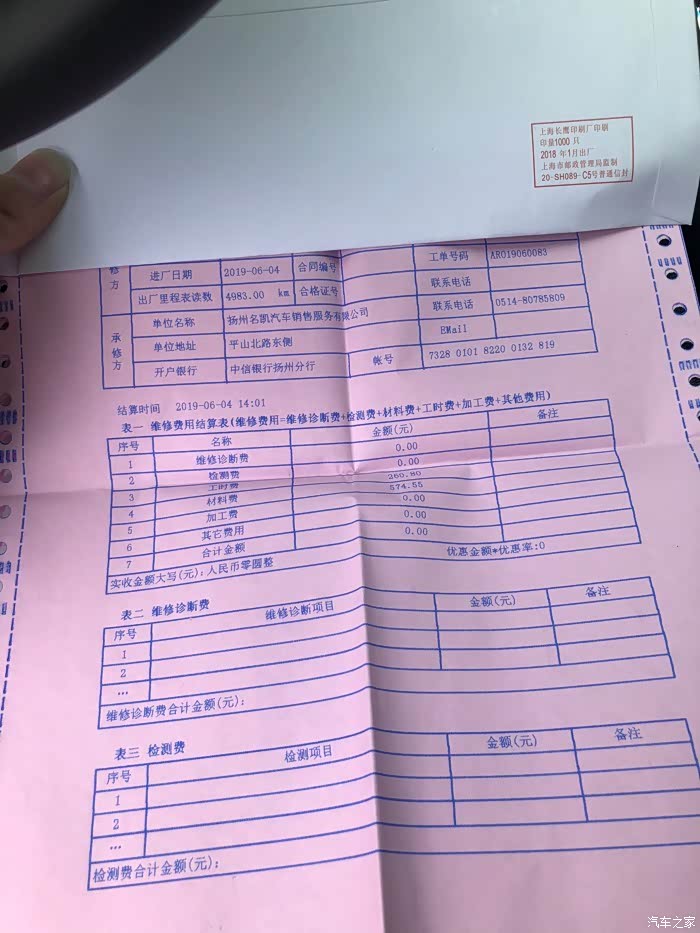 上海长鹰印刷厂印刷
印量1000 只
2018 年1月出厂
上海市邮政管理局监制
20-SH089-C5号普通信封
修方
进厂日期 2019-06-04 合同编号 工单号码 ARO19060083
出厂里程表读数 4983.00 km 合格证号 联系电话
承修方
单位名称 扬州名凯汽车销售服务有限公司 联系电话 0514-80785809
单位地址 平山北路东侧 EMail
开户银行 中信银行扬州分行 帐号 7328 0101 8220 0132 819
结算时间 2019-06-04 14:01
表一 维修费用结算表(维修费用=维修诊断费+检测费+材料费+工时费+加工费+其他费用)
序号 名称 金额(元) 备注
1 维修诊断费 0.00
2 检测费 0.00
3 工时费 260.80
4 材料费 574.55
5 加工费 0.00
6 其它费用 0.00
7 合计金额 0.00
实收金额大写(元):人民币零圆整 优惠金额*优惠率:0
表二 维修诊断费
序号 维修诊断项目 金额(元) 备注
1
2
...
维修诊断费合计金额(元):
表三 检测费
序号 检测项目 金额(元) 备注
1
2
...
检测费合计金额(元):
汽车之家